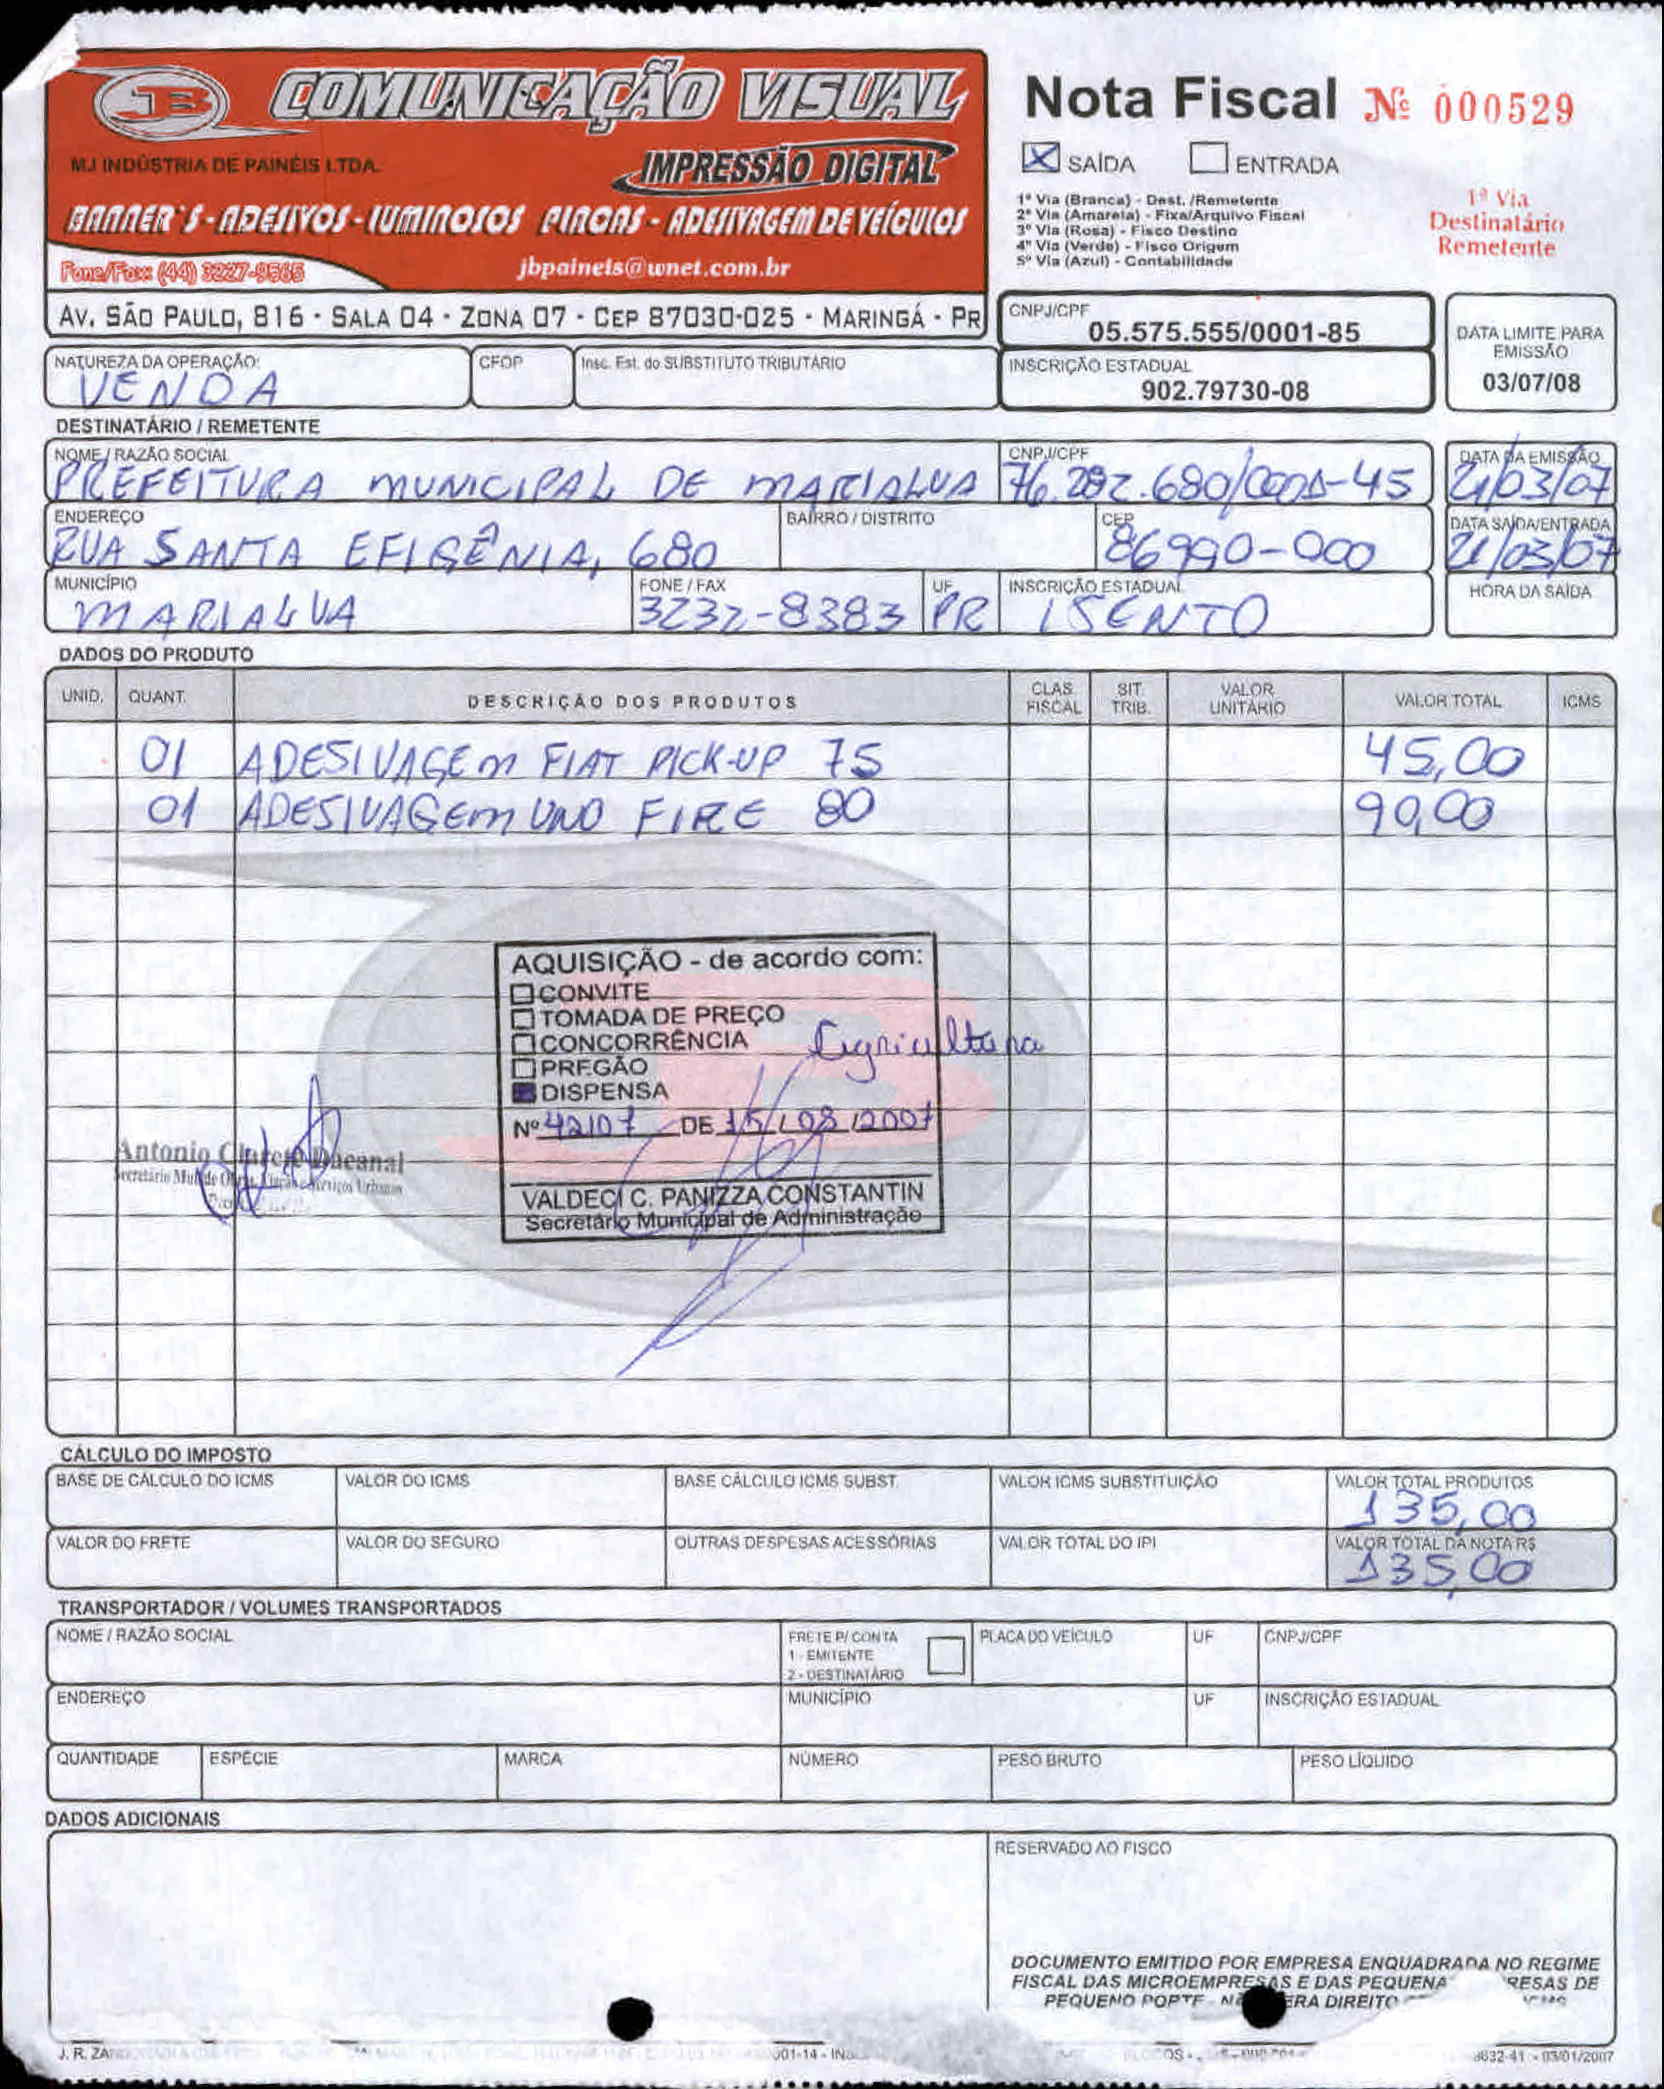 JB COMUNICAÇÃO VISUAL
MJ INDÚSTRIA DE PAINÉIS LTDA.
IMPRESSÃO DIGITAL
BANNER'S - ADESIVOS - LUMINOSOS PLACAS - ADESIVAGEM DE VEÍCULOS
Fone/Fax: (44) 3227-9565
jbpaineis@wnet.com.br
AV. SÃO PAULO, 816 - SALA 04 - ZONA 07 - CEP 87030-025 - MARINGÁ - PR
Nota Fiscal Nº 000529
X SAÍDA ENTRADA
1ª Via (Branca) - Dest. /Remetente
2ª Via (Amarela) - Fixa/Arquivo Fiscal
3ª Via (Rosa) - Fisco Destino
4ª Via (Verde) - Fisco Origem
5ª Via (Azul) - Contabilidade
1ª Via
Destinatário
Remetente
CNPJ/CPF
05.575.555/0001-85
INSCRIÇÃO ESTADUAL
902.79730-08
DATA LIMITE PARA
EMISSÃO
03/07/08
NATUREZA DA OPERAÇÃO:
VENDA
CFOP
Insc. Est. do SUBSTITUTO TRIBUTÁRIO
DESTINATÁRIO / REMETENTE
NOME / RAZÃO SOCIAL
PREFEITURA MUNICIPAL DE MARIALVA
CNPJ/CPF
76.282.680/0001-45
DATA DA EMISSÃO
21/03/07
ENDEREÇO
RUA SANTA EFIGÊNIA, 680
BAIRRO / DISTRITO
CEP
86990-000
DATA SAÍDA/ENTRADA
21/03/07
MUNICÍPIO
MARIALVA
FONE / FAX
3232-8383
UF
PR
INSCRIÇÃO ESTADUAL
ISENTO
HORA DA SAÍDA
DADOS DO PRODUTO
UNID. QUANT. DESCRIÇÃO DOS PRODUTOS CLAS. FISCAL SIT. TRIB. VALOR UNITÁRIO VALOR TOTAL ICMS
01 ADESIVAGEM FIAT PICK-UP 75 45,00
01 ADESIVAGEM UNO FIRE 80 90,00
AQUISIÇÃO - de acordo com:
CONVITE
TOMADA DE PREÇO
CONCORRÊNCIA
Agricultura
PREGÃO
DISPENSA
Nº 42107 DE 15/03/2007
VALDECI C. PANIZZA CONSTANTIN
Secretário Municipal de Administração
Antonio
CÁLCULO DO IMPOSTO
BASE DE CÁLCULO DO ICMS
VALOR DO ICMS
BASE CÁLCULO ICMS SUBST.
VALOR ICMS SUBSTITUIÇÃO
VALOR TOTAL PRODUTOS
135,00
VALOR DO FRETE
VALOR DO SEGURO
OUTRAS DESPESAS ACESSÓRIAS
VALOR TOTAL DO IPI
VALOR TOTAL DA NOTA R$
135,00
TRANSPORTADOR / VOLUMES TRANSPORTADOS
NOME / RAZÃO SOCIAL
FRETE P/ CONTA
1 - EMITENTE
2 - DESTINATÁRIO
PLACA DO VEÍCULO
UF
CNPJ/CPF
ENDEREÇO
MUNICÍPIO
UF
INSCRIÇÃO ESTADUAL
QUANTIDADE
ESPÉCIE
MARCA
NÚMERO
PESO BRUTO
PESO LÍQUIDO
DADOS ADICIONAIS
RESERVADO AO FISCO
DOCUMENTO EMITIDO POR EMPRESA ENQUADRADA NO REGIME
FISCAL DAS MICROEMPRESAS E DAS
PEQUENO PORTE
DIREITO
J. R.
03/01/2007